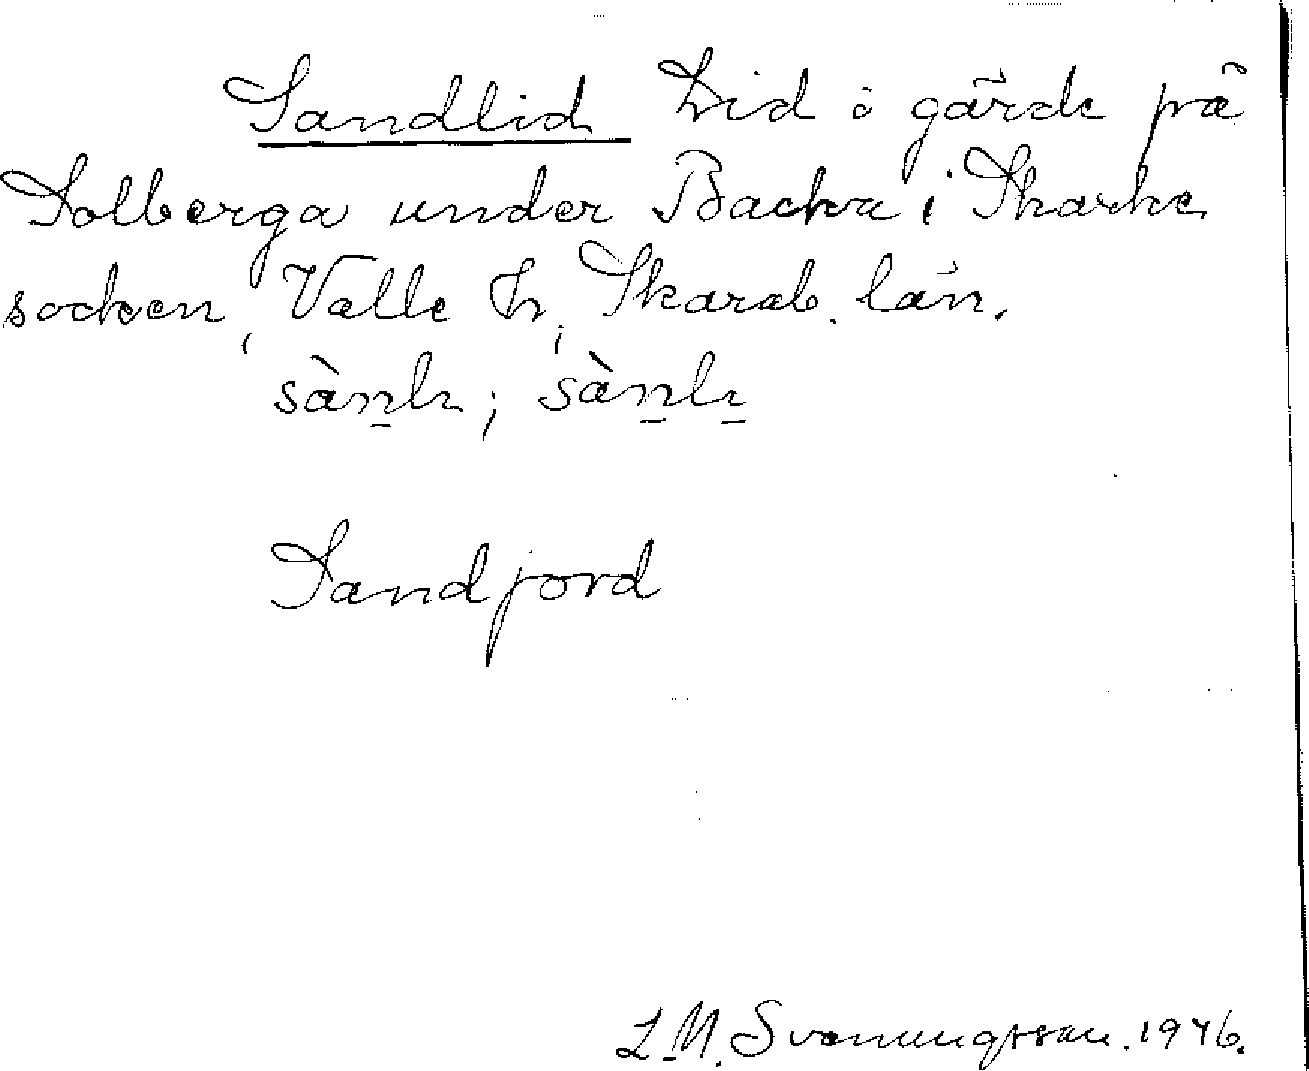 Sandlid Lid i gärde på
Solberga under Backa i Skarke
socken, Valle h, Skarab. län.
sàn̲lı; sàn̲lı̲
Sandjord
L.M. Svenungsson. 1946.